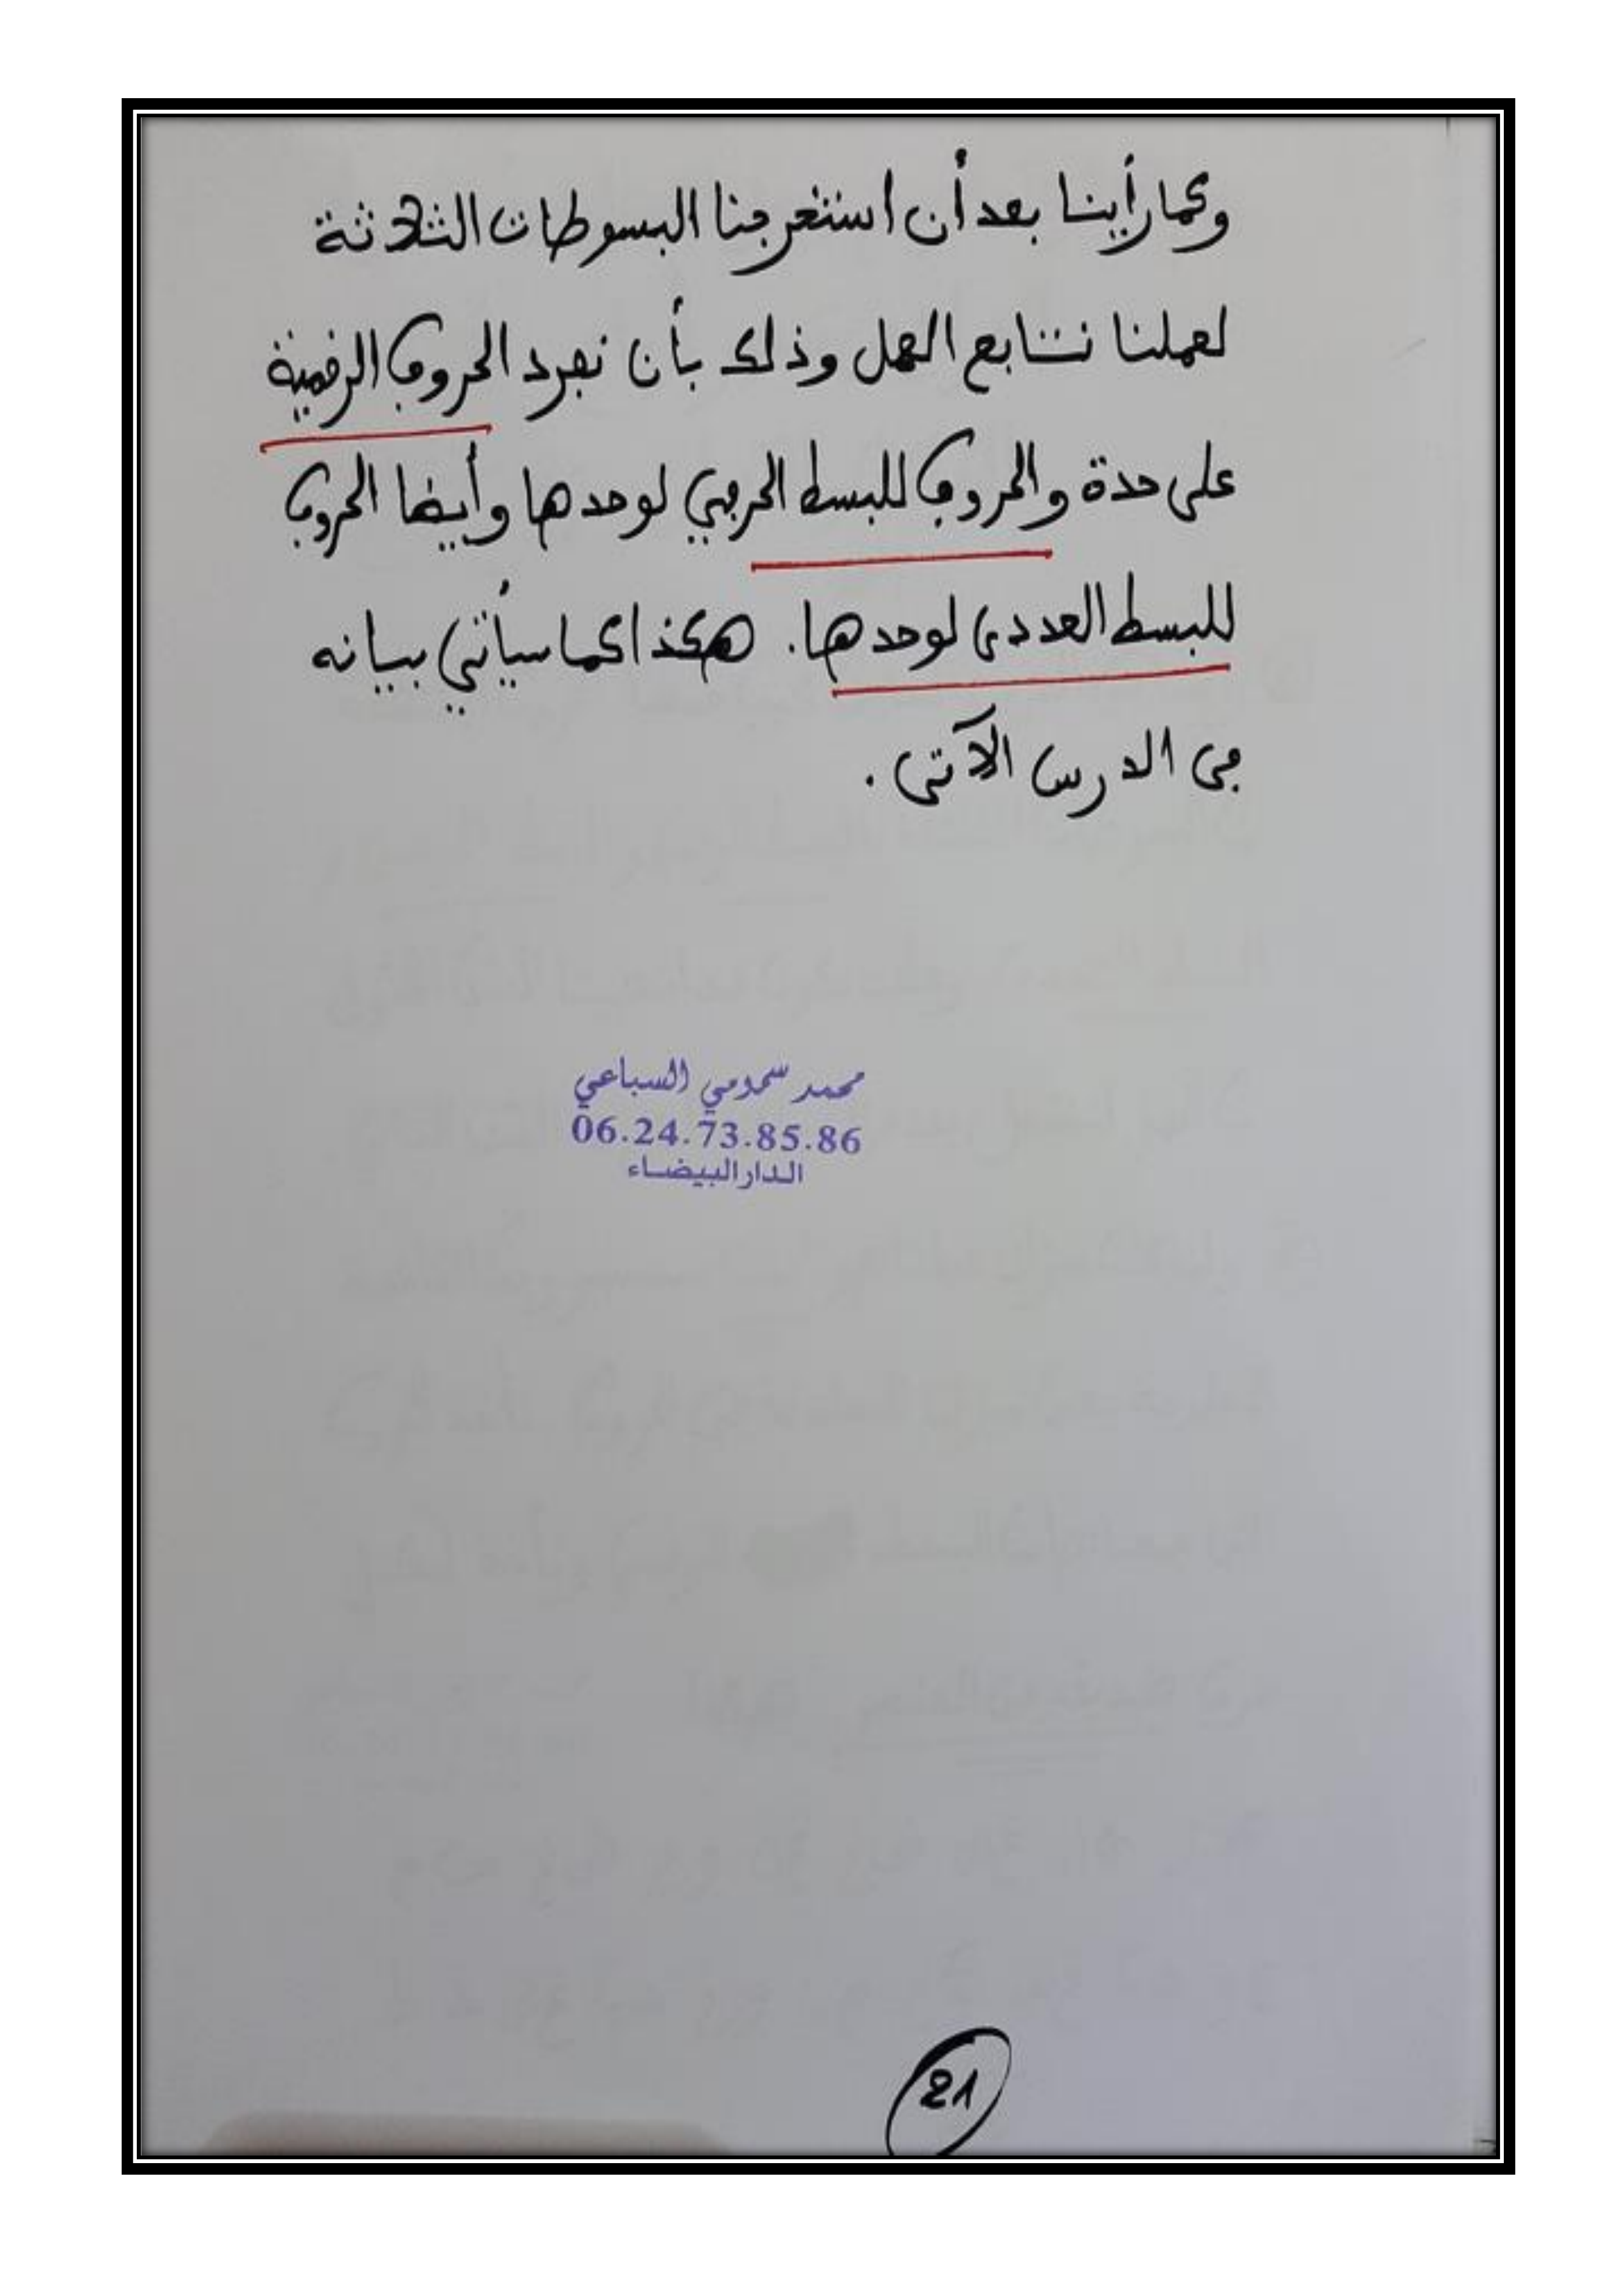 وكما رأينا بعد أن استخرجنا البسوطات الثلاثة
لعملنا نتابع العمل وذلك بأن نجرد الحروف الرقمية
على حدة والحروف للبسط الحرفي لوحدها وأيضا الحروف
للبسط العددى لوحدها. هكذا كما سيأتي بيانه
في الدرس الآتى.
محمد سمومي السباعي
06.24.73.85.86
الدار البيضاء
21